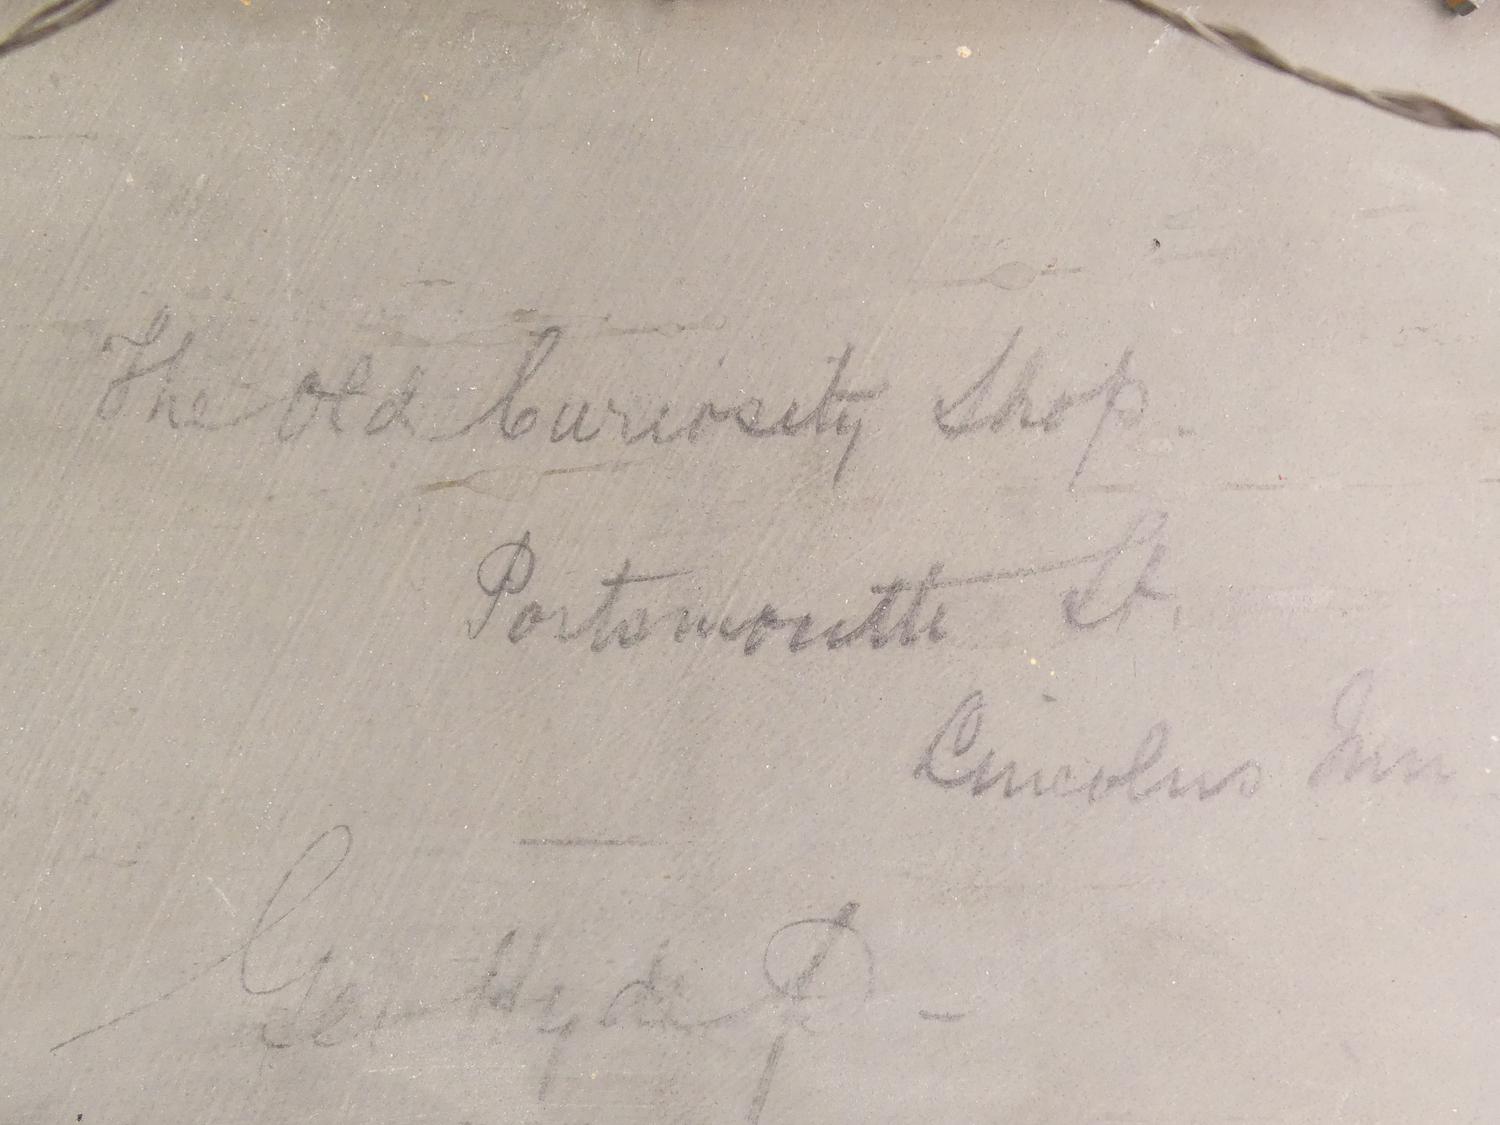 The Old Curiosity Shop.
Portsmouth St.
Lincolns Inn
Geo Hyde P